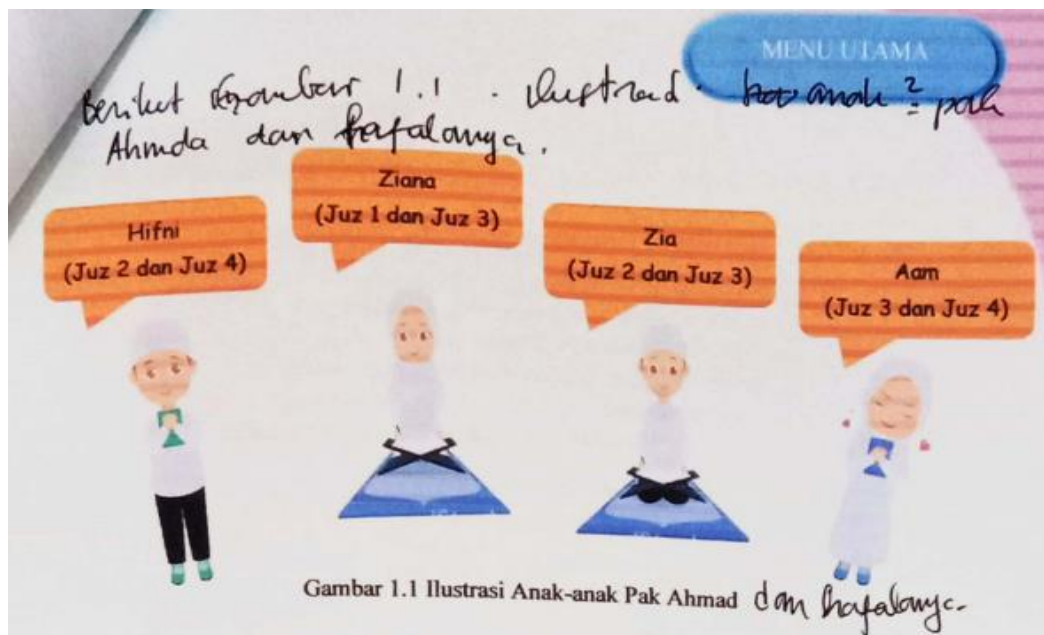 MENU UTAMA
Berikut Gambar 1.1. ilustrasi anak² pak
Ahmda dan hafalanya.
Ziana
(Juz 1 dan Juz 3)
Hifni
(Juz 2 dan Juz 4)
Zia
(Juz 2 dan Juz 3)
Aam
(Juz 3 dan Juz 4)
Gambar 1.1 Ilustrasi Anak-anak Pak Ahmad dan hafalanya.